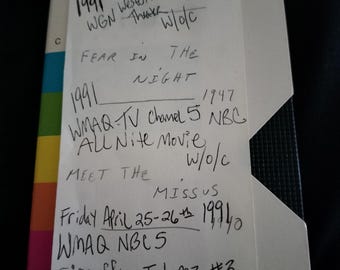 1991
WGN Western
Theater W/O/C
C
FEAR IN THE
NIGHT
1991 1947
WMAQ-TV Channel 5 NBC
All Nite Movie
W/O/C
MEET THE
MISSUS
Friday April 25-26th 1991
WMAQ NBC 5
#3